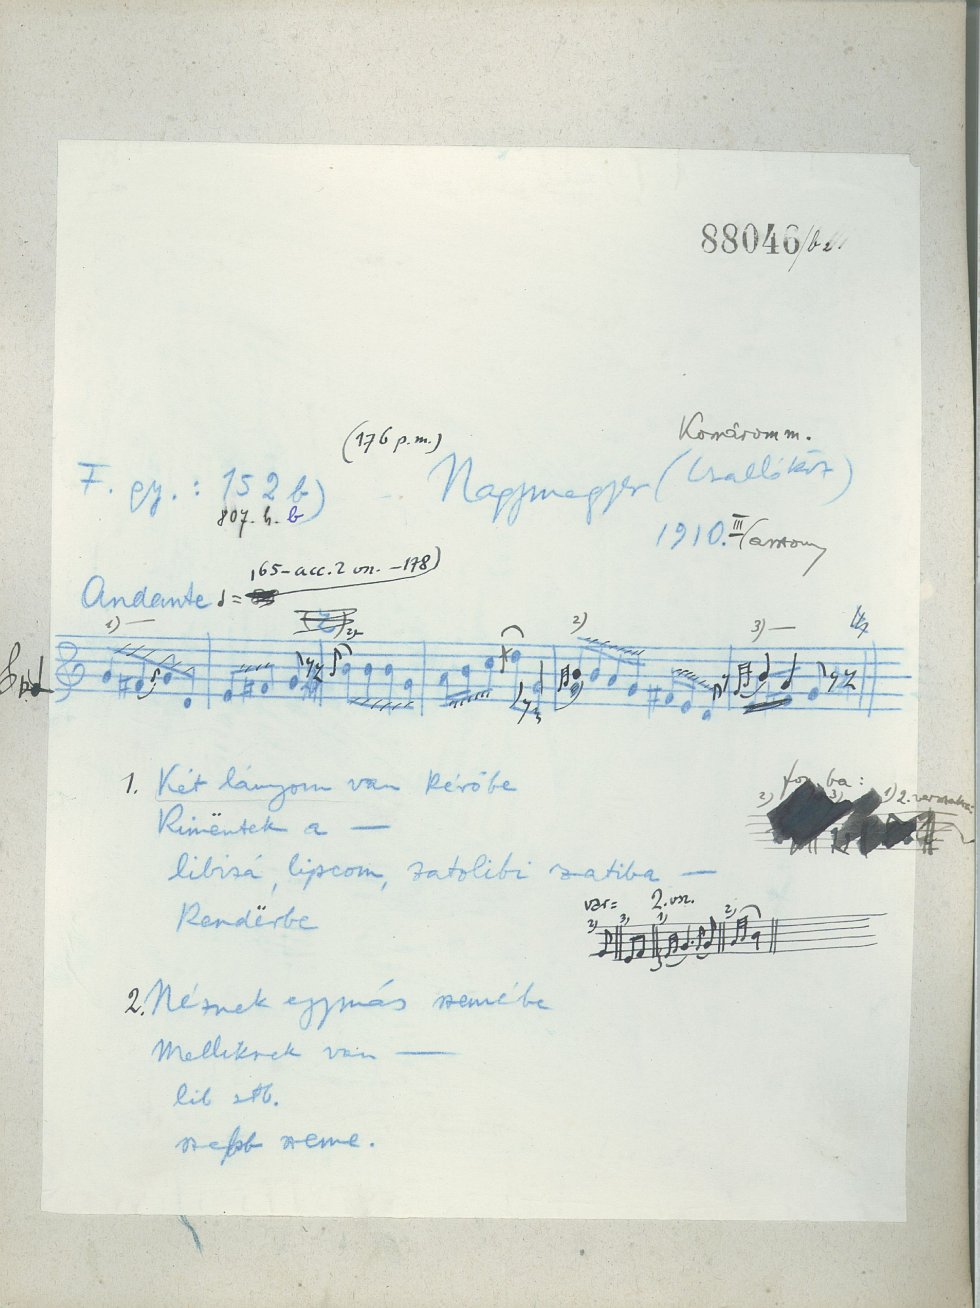 88046/b2.
(176 p.m.)
Komárom m.
F. gy.: 152 b)
Nagymegyer (Csallóköz)
807. h. b
1910. III
Andante ♩=
,65-acc. 2 vsz. -178)
1) —
2)
2)
3) —
1. Két lányom van kérőbe
Kimëntek a —
libizá, lipscom, zatolibi zatiba —
Rendërbe
2)
3)
1) 2. versszak:
var=
2. vsz.
2) 3) 1) 2)
2. Néznek egymás szemébe
Melliknek van —
lib stb.
szebb szeme.